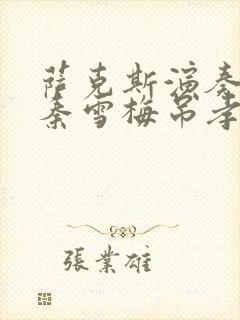 萨克斯演奏
秦雪梅吊孝
張業雄